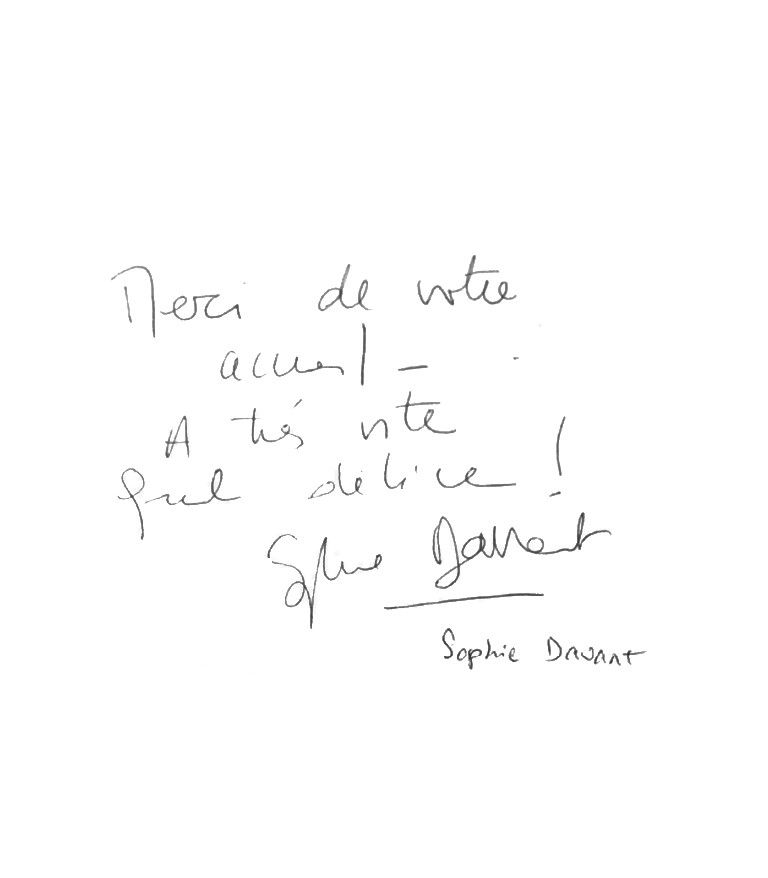 Merci de votre
accueil –
A très vite
Quel délice !
Sophie Davant
Sophie Davant